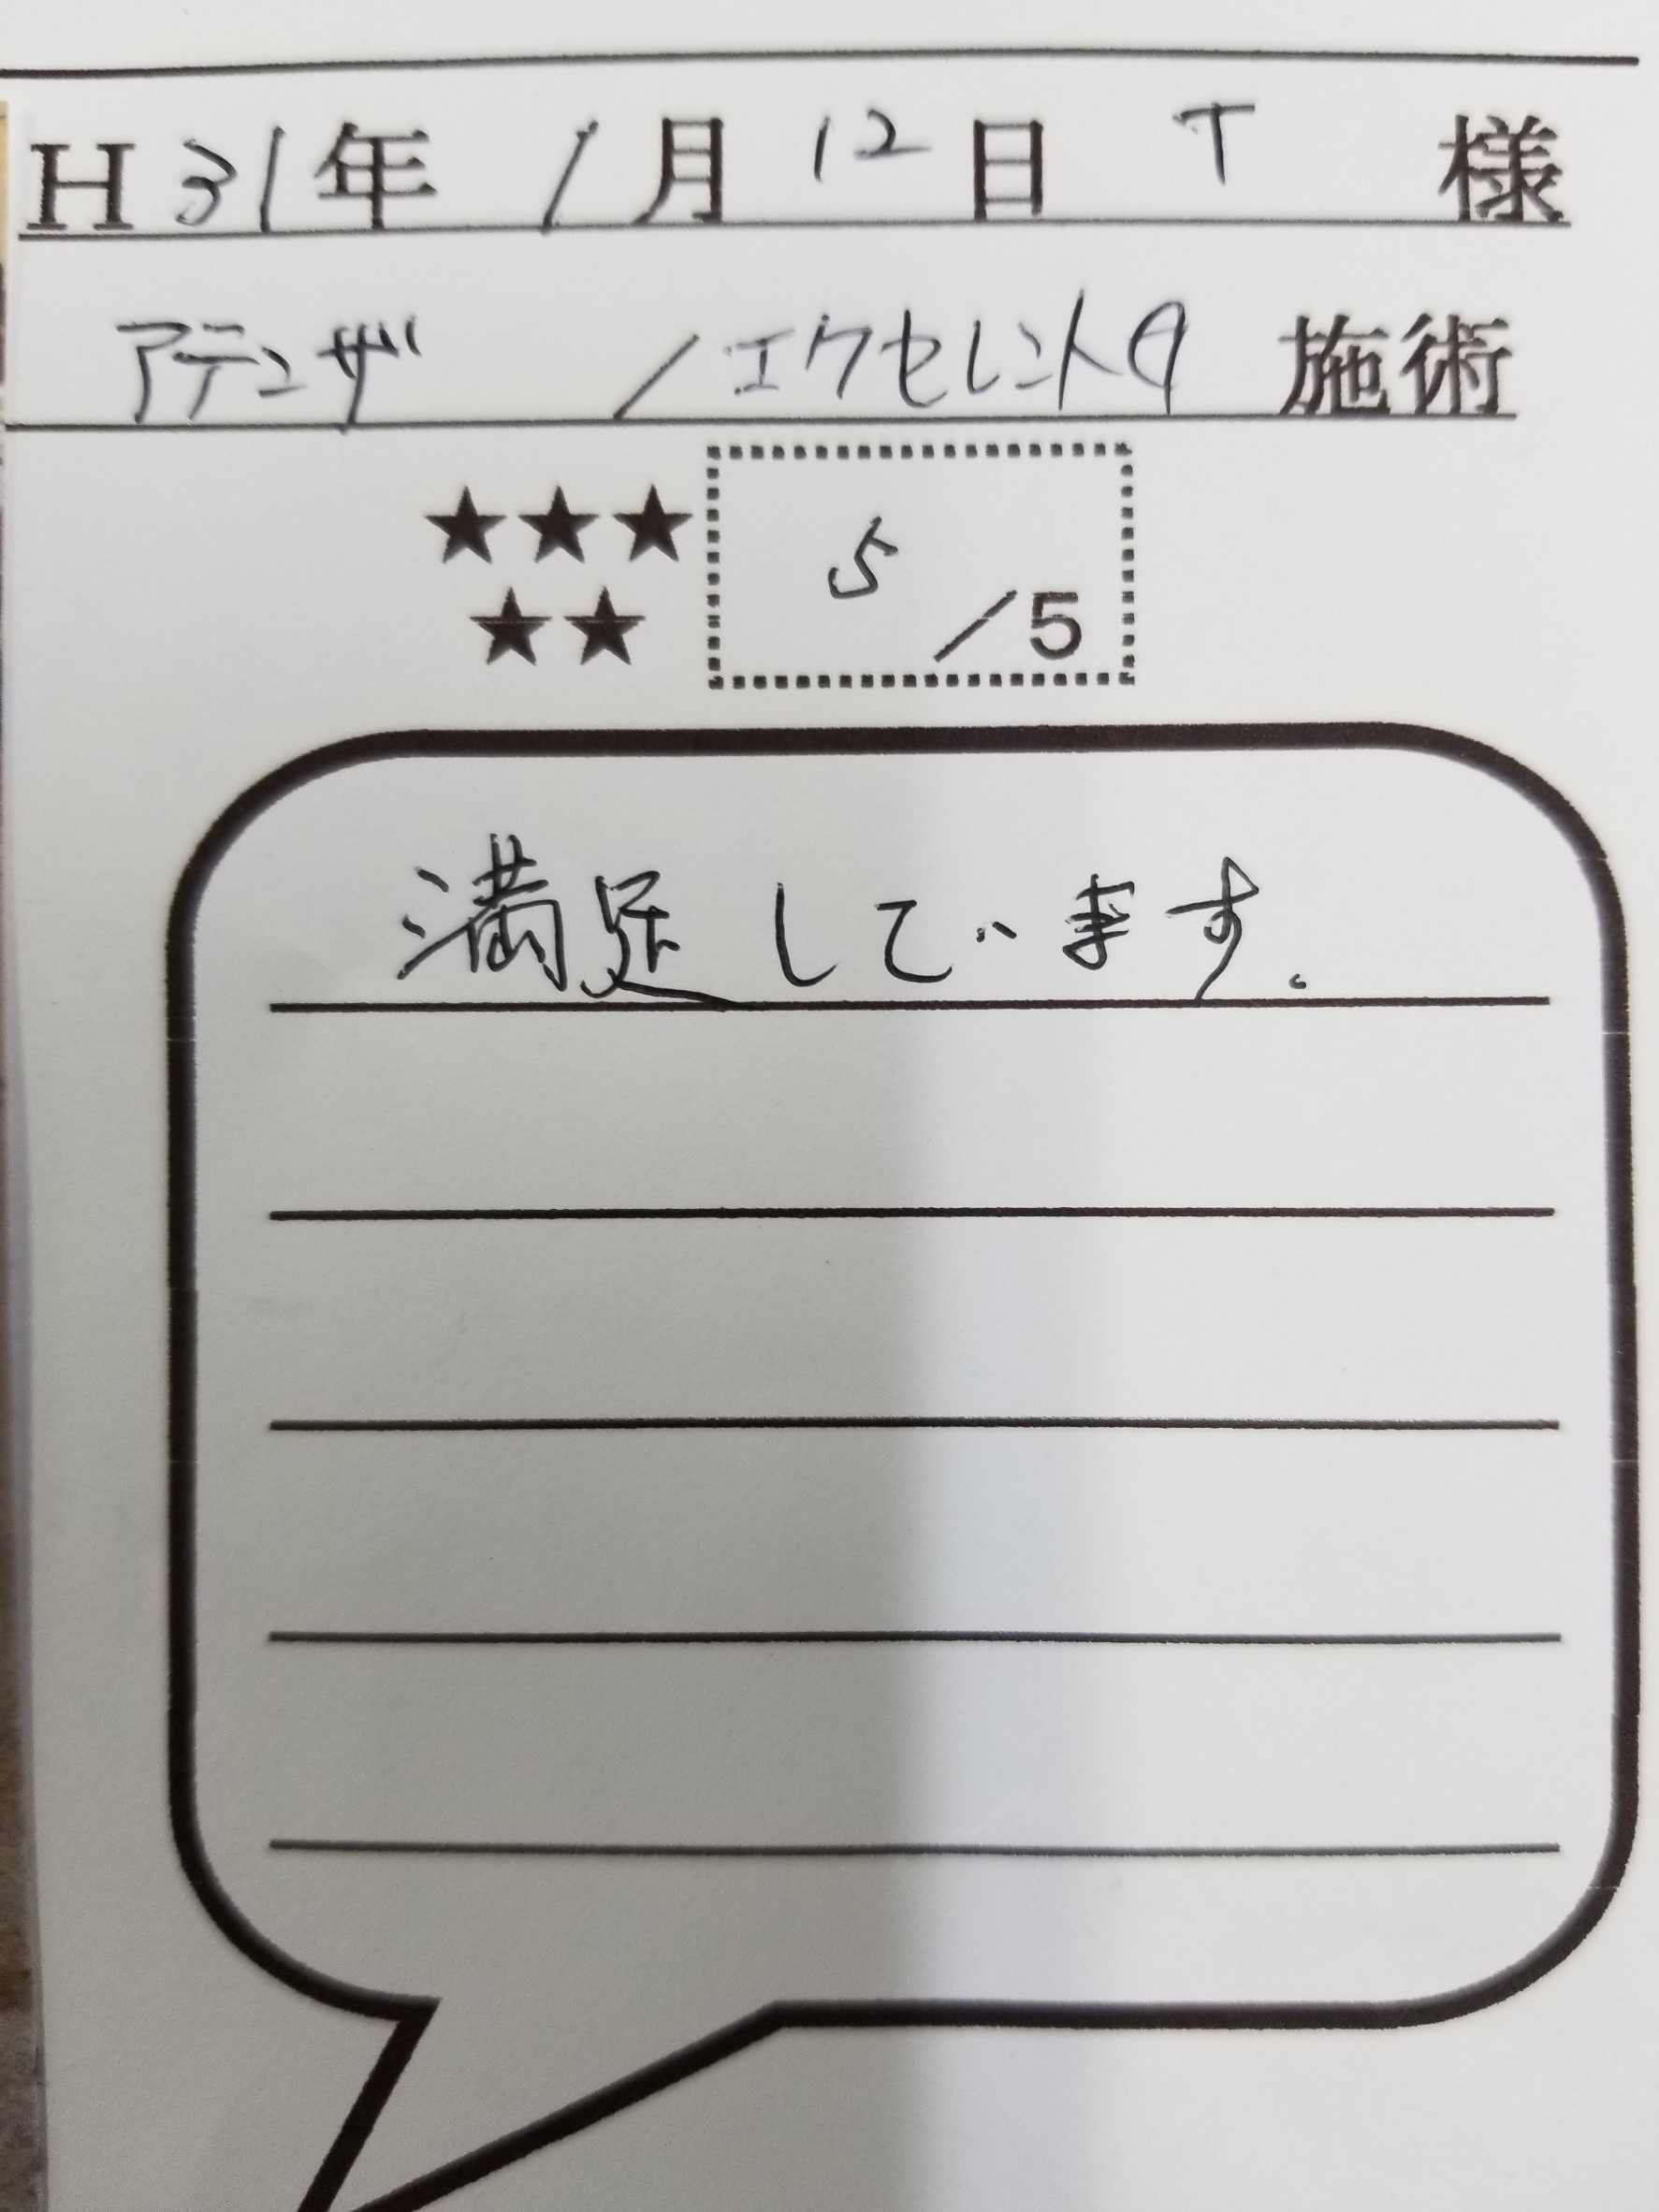 H31年 1月 12日 T 様
アテンザ /エクセレントQ 施術
★★★
★★
5/5
満足しています。